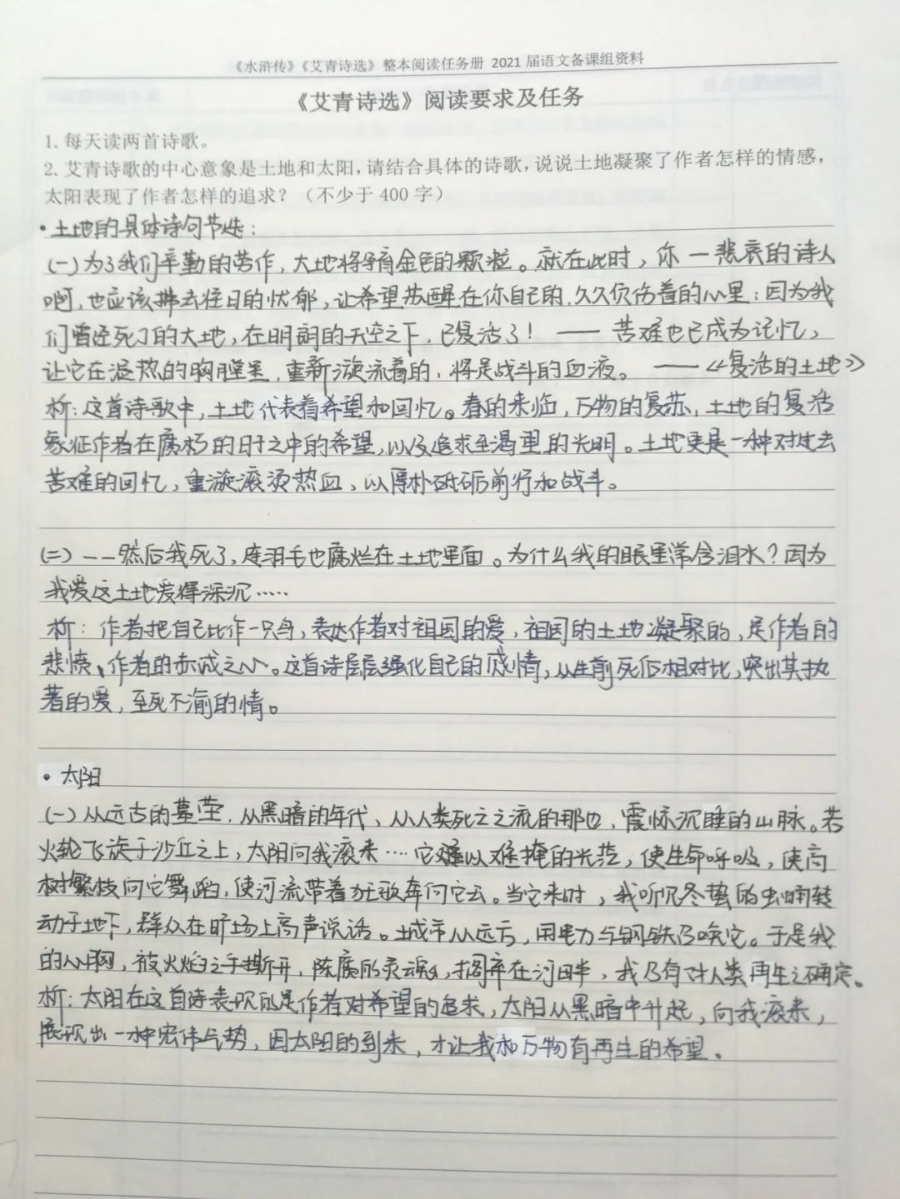 《水浒传》《艾青诗选》整本阅读任务册 2021 届语文备课组资料
《艾青诗选》阅读要求及任务
1. 每天读两首诗歌。
2. 艾青诗歌的中心意象是土地和太阳，请结合具体的诗歌，说说土地凝聚了作者怎样的情感，
太阳表现了作者怎样的追求？（不少于 400 字）
· 土地的具体诗句节选：
(一) 为了我们辛勤的劳作，大地将孕育金色的颗粒。就在此时，你 一 悲哀的诗人
啊，也应该拂去往日的忧郁，让希望苏醒在你自己的，久久负伤着的心里：因为我
们曾经死了的大地，在明朗的天空之下，已复活了！ —— 苦难也已成为记忆，
让它在温热的胸膛里，重新漩流着的，将是战斗的血液。 ——《复活的土地》
析：这首诗歌中，土地代表着希望和回忆。春的来临，万物的复苏，土地的复活
象征作者在腐朽的日子之中的希望，以及追求至渴望的光明。土地更是一种对过去
苦难的回忆，重漩滚烫热血，以厚朴砥砺前行和战斗。
(二) ——然后我死了，连羽毛也腐烂在土地里面。为什么我的眼里常含泪水？因为
我爱这土地爱得深沉……
析：作者把自己比作一只鸟，表达作者对祖国的爱，祖国的土地凝聚的，是作者的
悲愤、作者的赤诚之心。这首诗层层强化自己的感情，从生前死后相对比，突出其执
著的爱，至死不渝的情。
· 太阳
(一) 从远古的墓茔，从黑暗的年代，从人类死亡之流的那边，震惊沉睡的山脉。若
火轮飞旋于沙丘之上，太阳向我滚来……它以难掩的光芒，使生命呼吸，使高
树繁枝向它舞蹈，使河流带着狂歌奔向它去。当它来时，我听见冬蛰的虫蛹转
动于地下，群众在旷场上高声说话。城市从远方，用电力与钢铁召唤它。于是我
的心胸，被火焰之手撕开，陈腐的灵魂，搁弃在河畔，我乃有对人类再生之确定。
析：太阳在这首诗表现的是作者对希望的追求，太阳从黑暗中升起，向我滚来，
展现出一种宏伟气势，因太阳的到来，才让我和万物有再生的希望。